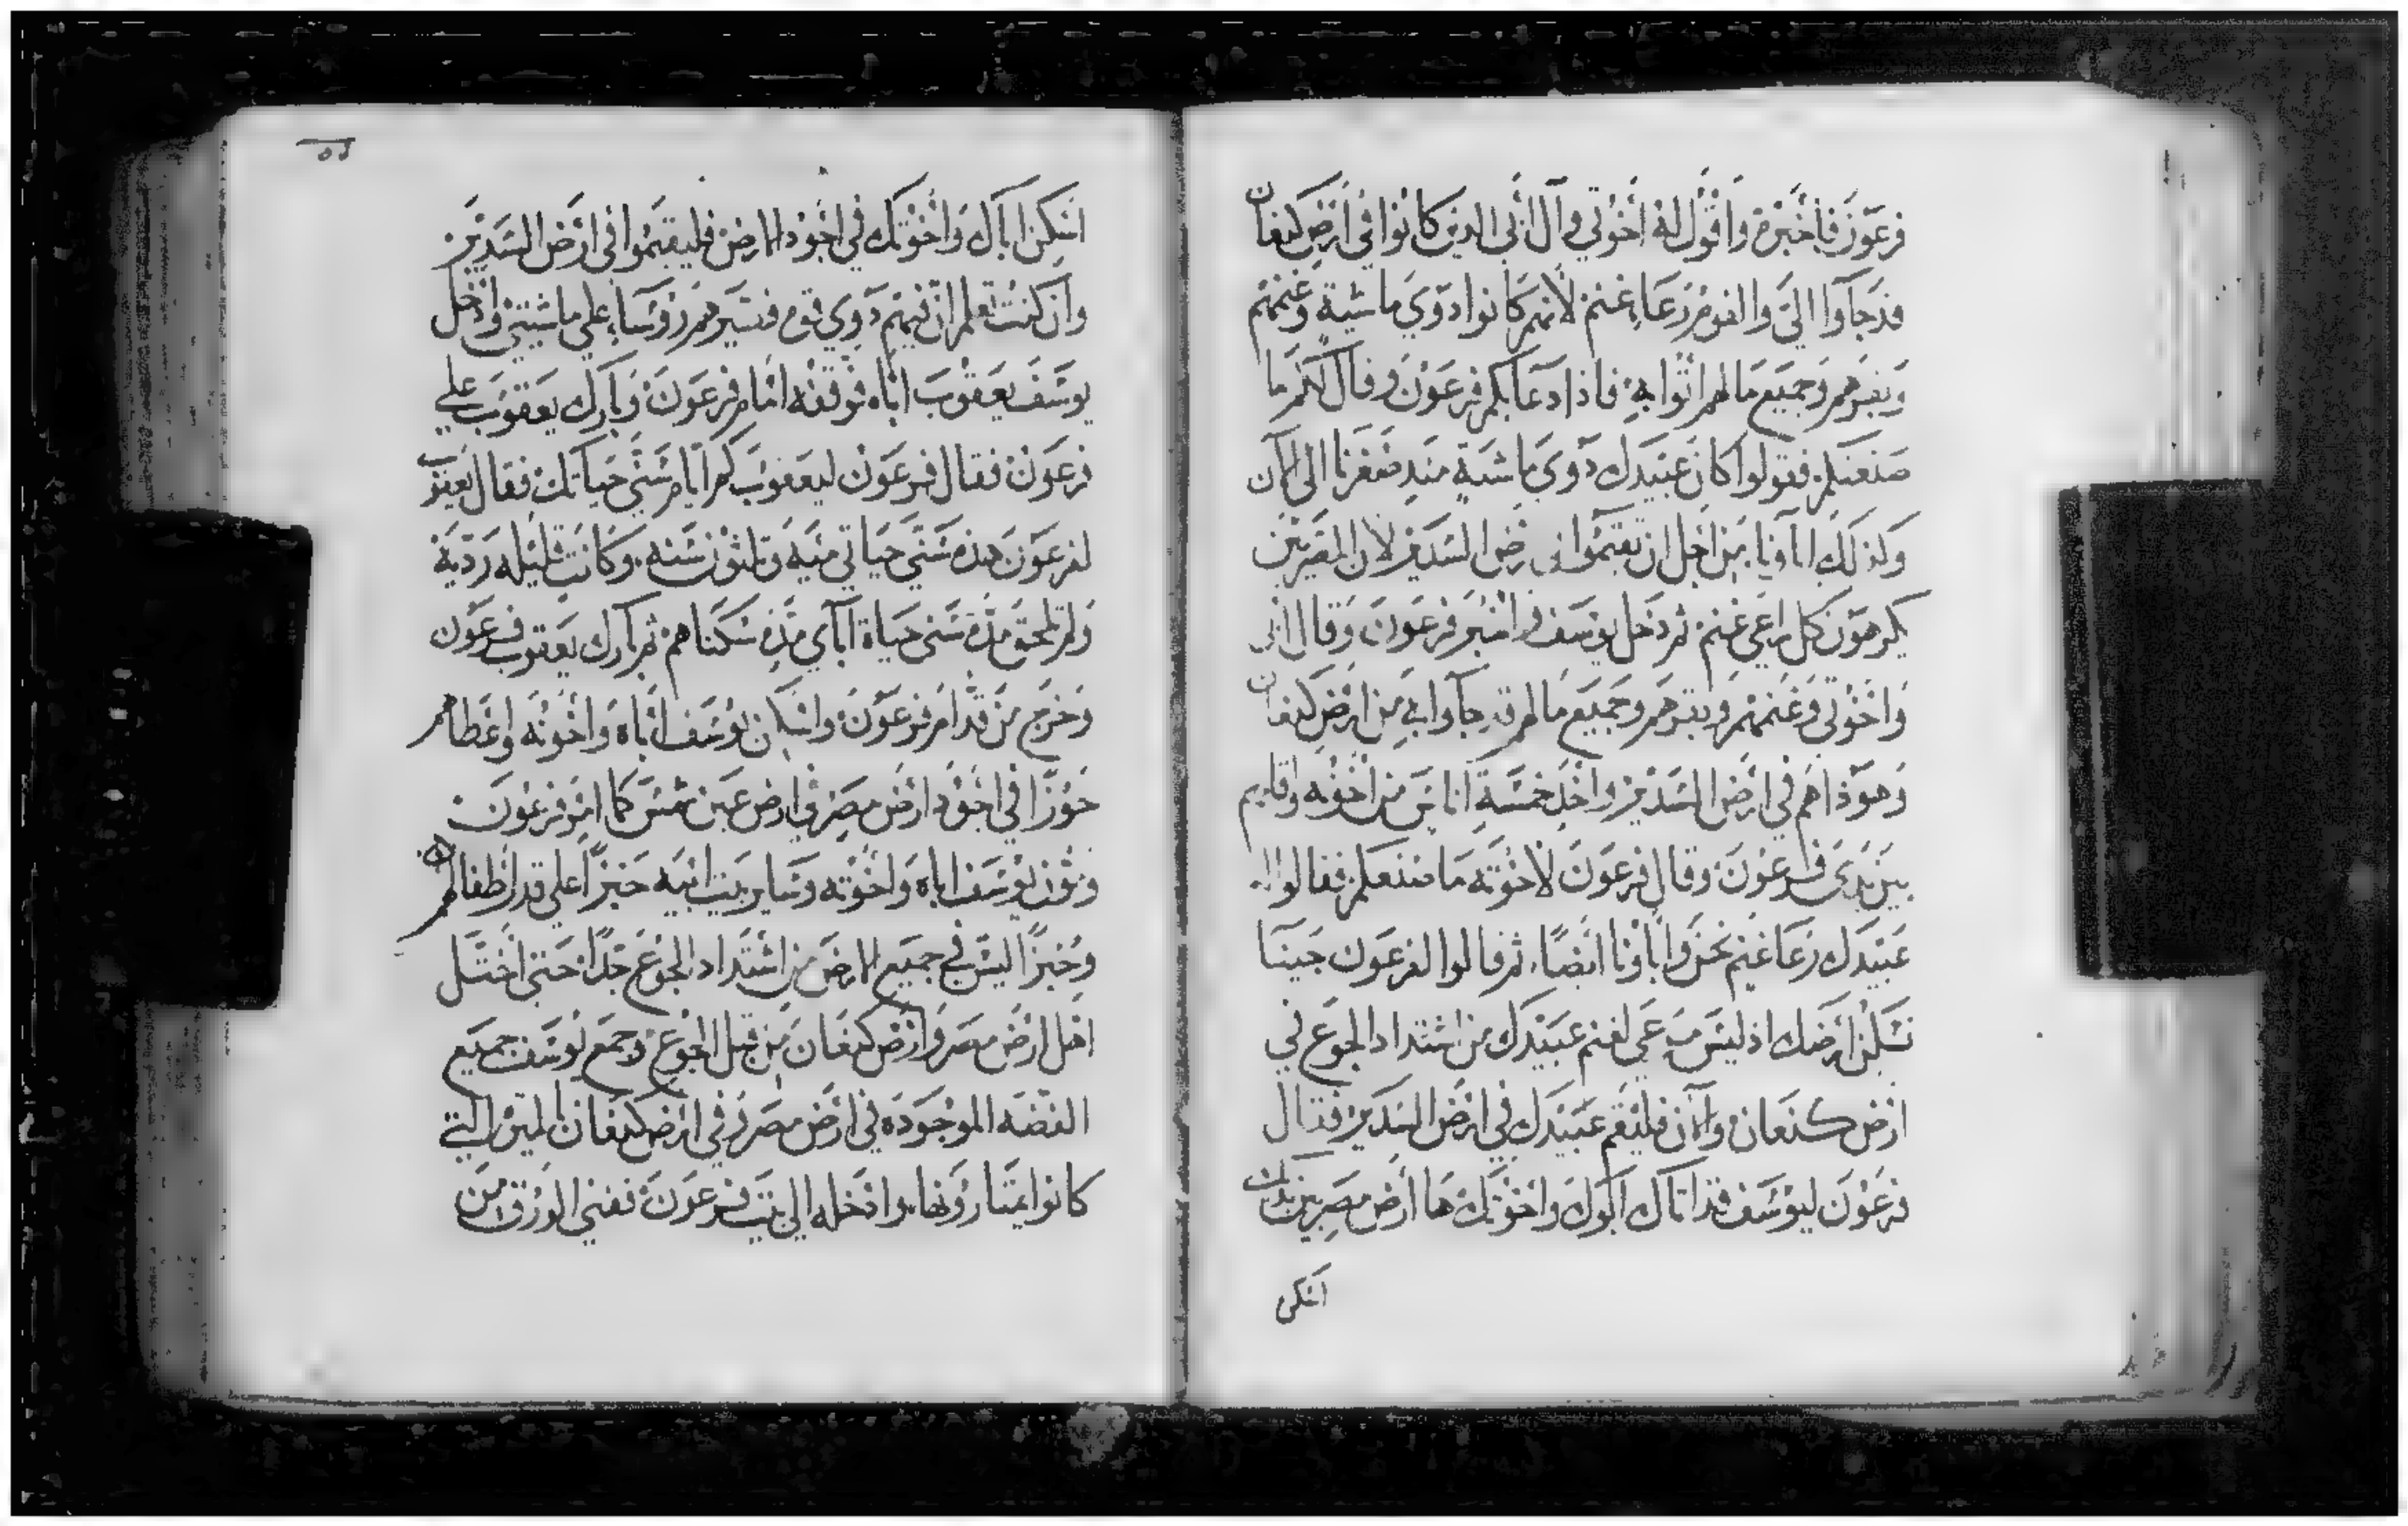 فرعون فاخبره واقول له اخوتي وآل ابي الدين كانوا في ارض كنعان
قد جآوا اليّ والقوم رعاء غنم لانهم كانوا دوي ماشية وغنمهم
وبقرهم وجميع ما لهم اتوا به فاذا دعا بكم فرعون وقال لكم ما
صنعتكم فقولوا كان عبيدك دوي ماشية منذ صغرنا الى الان
وكذلك اباونا من اجل ان تقيموا في رض السدير لان المصريين
يكرهون كل راعي غنم ثم دخل يوسف فاخبر فرعون وقال ابي
واخوتي وغنمهم وبقرهم وجميع ما لهم قد جآوا الي من ارض كنعان
وهوذا هم في ارض السدير واخذ خمسة اناس من اخوته واقامهم
بين يدي فرعون وقال فرعون لاخوته ما صنعتكم فقالوا
عبيدك رعا غنم نحن واباونا ايضا ثم قالوا لفرعون جينا
نسكن ارضك اذ ليس مرعي لغنم عبيدك من اشتداد الجوع في
ارض كنعان والان فليقم عبيدك في ارض السدير فقال
فرعون ليوسف قد اتاك ابوك واخوتك ها ارض مصر بين يديك
اسكن
اسكن اباك واخوتك في اجود الارض فليقيموا في ارض السدير
وان كنت تعلم ان فيهم دوي قوه فتسيرهم رؤساء علي ماشيتي وادخل
يوسف يعقوب اباه فوقفه امام فرعون وبارك يعقوب علي
فرعون فقال فرعون ليعقوب كم ايام سني حياتك فقال يعقوب
لفرعون هذه سني حياتي ميه وثلثون سنه وكانت قليله رديه
ولم تلحق مده سني حياة آباي مده سكناهم ثم بارك يعقوب فرعون
وخرج من قدام فرعون واسكن يوسف اباه واخوته واعطاهم
حوزا في اجود ارض مصر في ارض عين شمس كما امر فرعون
ومون يوسف اباه واخوته وساير بيت ابيه خبزا على قدر اطفالهم
وخبزا ليس في جميع الارض من اشتداد الجوع جدا حتى اختل
اهل ارض مصر وارض كنعان من قبل الجوع وجمع يوسف جميع
الفضه الموجوده في ارض مصر وفي ارض كنعان المير التي
كانوا يمتارونها وادخله الى بيت فرعون ففني الورق من